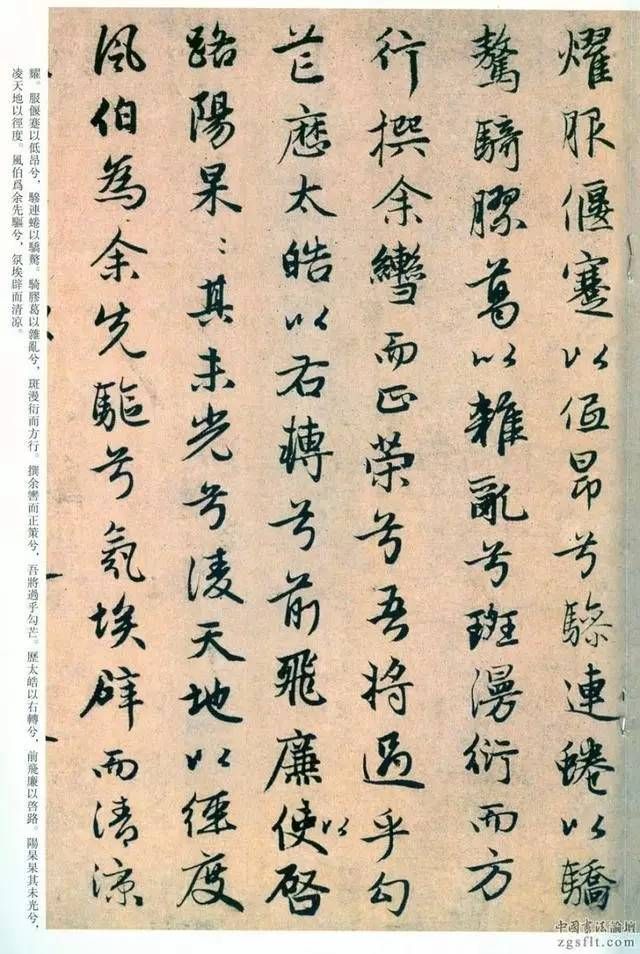 燿服偃蹇以低昂兮驂連蜷以驕
驁騎膠葛以雜亂兮斑漫衍而方
行撰余轡而正策兮吾將過乎勾
芒歷太皓以右轉兮前飛廉使以啓
路陽杲〻其未光兮凌天地以徑度
風伯為余先驅兮氛埃辟而清涼
耀。服偃蹇以低昂兮，驂連蜷以驕驁。騎膠葛以雜亂兮，斑漫衍而方行。撰余轡而正策兮，吾將過乎勾芒。歷太皓以右轉兮，前飛廉以啓路。陽杲杲其未光兮，
凌天地以徑度。風伯爲余先驅兮，氛埃辟而清涼。
中国書法論壇
zgsflt.com